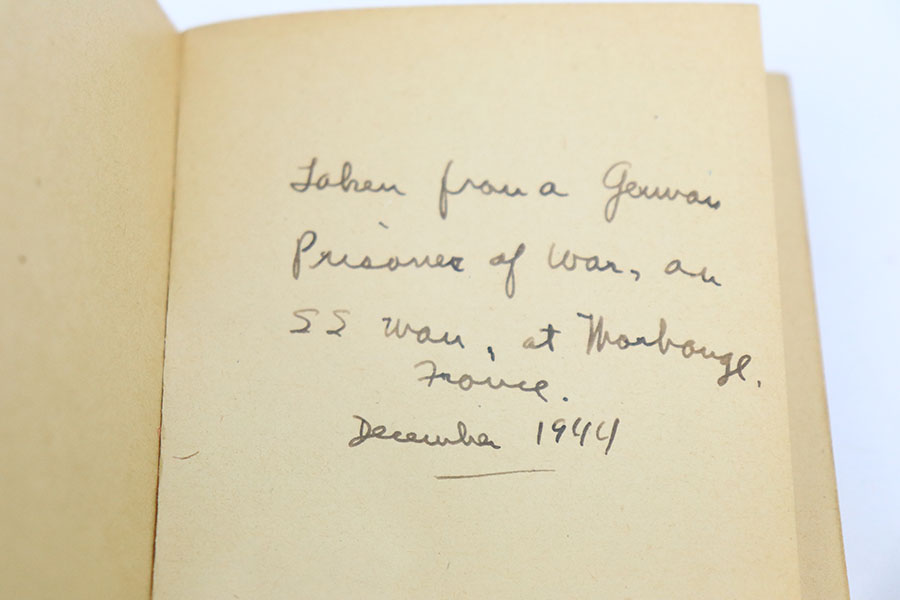 Taken from a German
Prisoner of War, an
SS man, at Morbange.
France.
December 1944